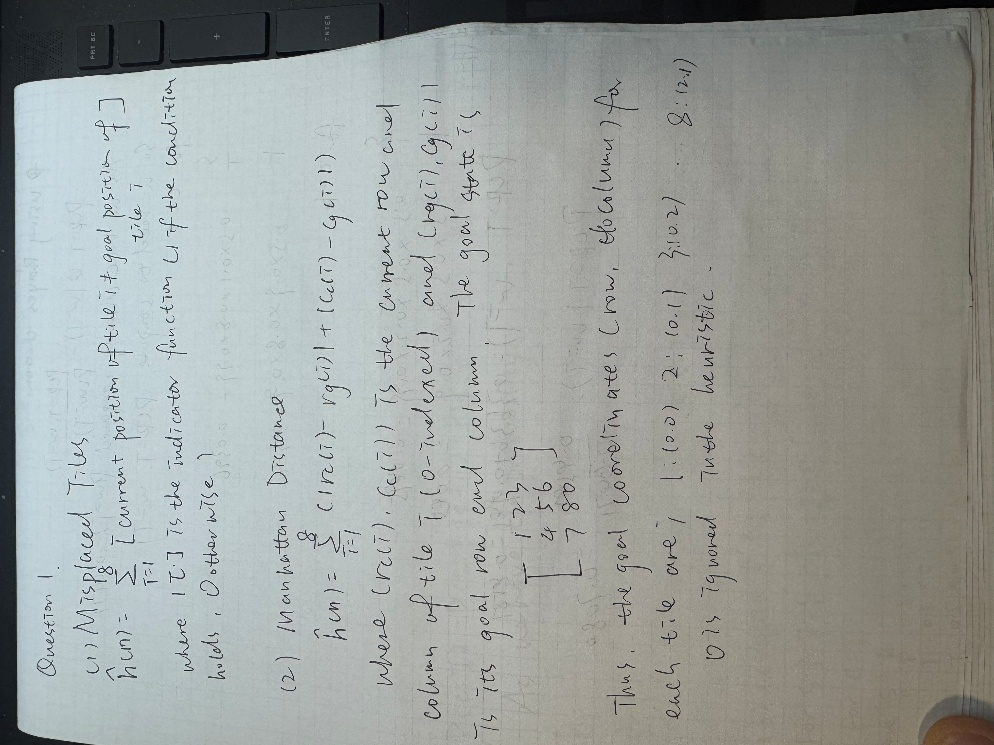 Question 1.
(1) Misplaced Tiles
ĥ(n) = 8 Σ i=1 [current position of tile i ≠ goal position of tile i]
where 1[·] is the indicator function (1 if the condition
holds, 0 otherwise)
(2) Manhattan Distance
ĥ(n) = 8 Σ i=1 (|rc(i) - rg(i)| + |Cc(i) - Cg(i)|)
where (rc(i), Cc(i)) is the current row and
column of tile i (0-indexed) and (rg(i), Cg(i))
is its goal row and column. The goal state is
[ 1 2 3
4 5 6
7 8 0 ]
Thus, the goal coordinates (row, column) for
each tile are; 1:(0.0) 2:(0.1) 3:(0.2) .. 8:(2.1)
0 is ignored in the heuristic.
PRT SC
-
+
ENTER